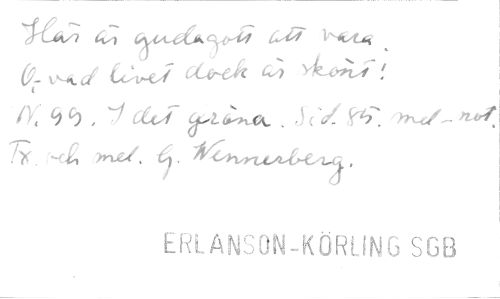 Här är gudagott att vara.
O, vad livet dock är skönt!
N. 99. I det gröna. Sid. 85. mel-not.
Tx. och mel. G. Wennerberg.
ERLANSON-KÖRLING SGB